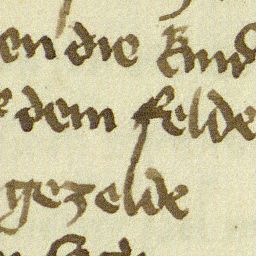 en die kind
dem felde
gezelde